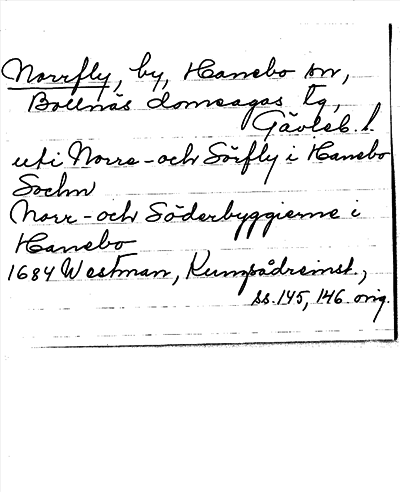 Norrfly, by, Hanebo sn,
Bollnäs domsagas tg,
Gävleb. l.
uti Norra- och Sörfly i Hanebo
Sochn
Norr- och Söderbyggierne i
Hanebo
1684 Westman, Kumpådreinst.,
ss. 145, 146 orig.